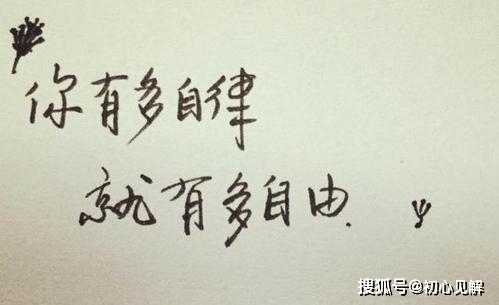 你有多自律
就有多自由.
搜狐号@初心见解